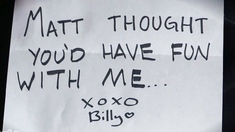 MATT THOUGHT
YOU'D HAVE FUN
WITH ME...
XOXO
Billy♡